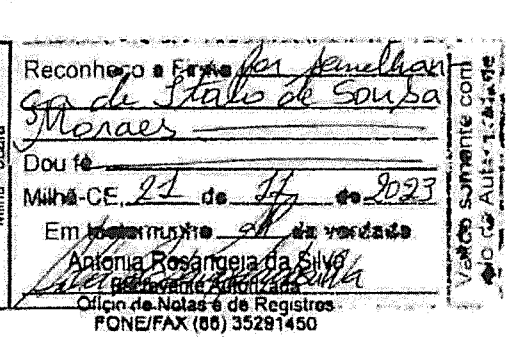 Reconheço a Firma por semelhan
ça de Italo de Sousa
Moraes
Dou fé
Milhã-CE, 21 de 11 de 2023
Em testemunho da verdade
Antonia Rosangela da Silva
Escrevente Autorizada
Ofício de Notas e de Registros
FONE/FAX (88) 35291450
Valido somente com
selo de Autenticidade